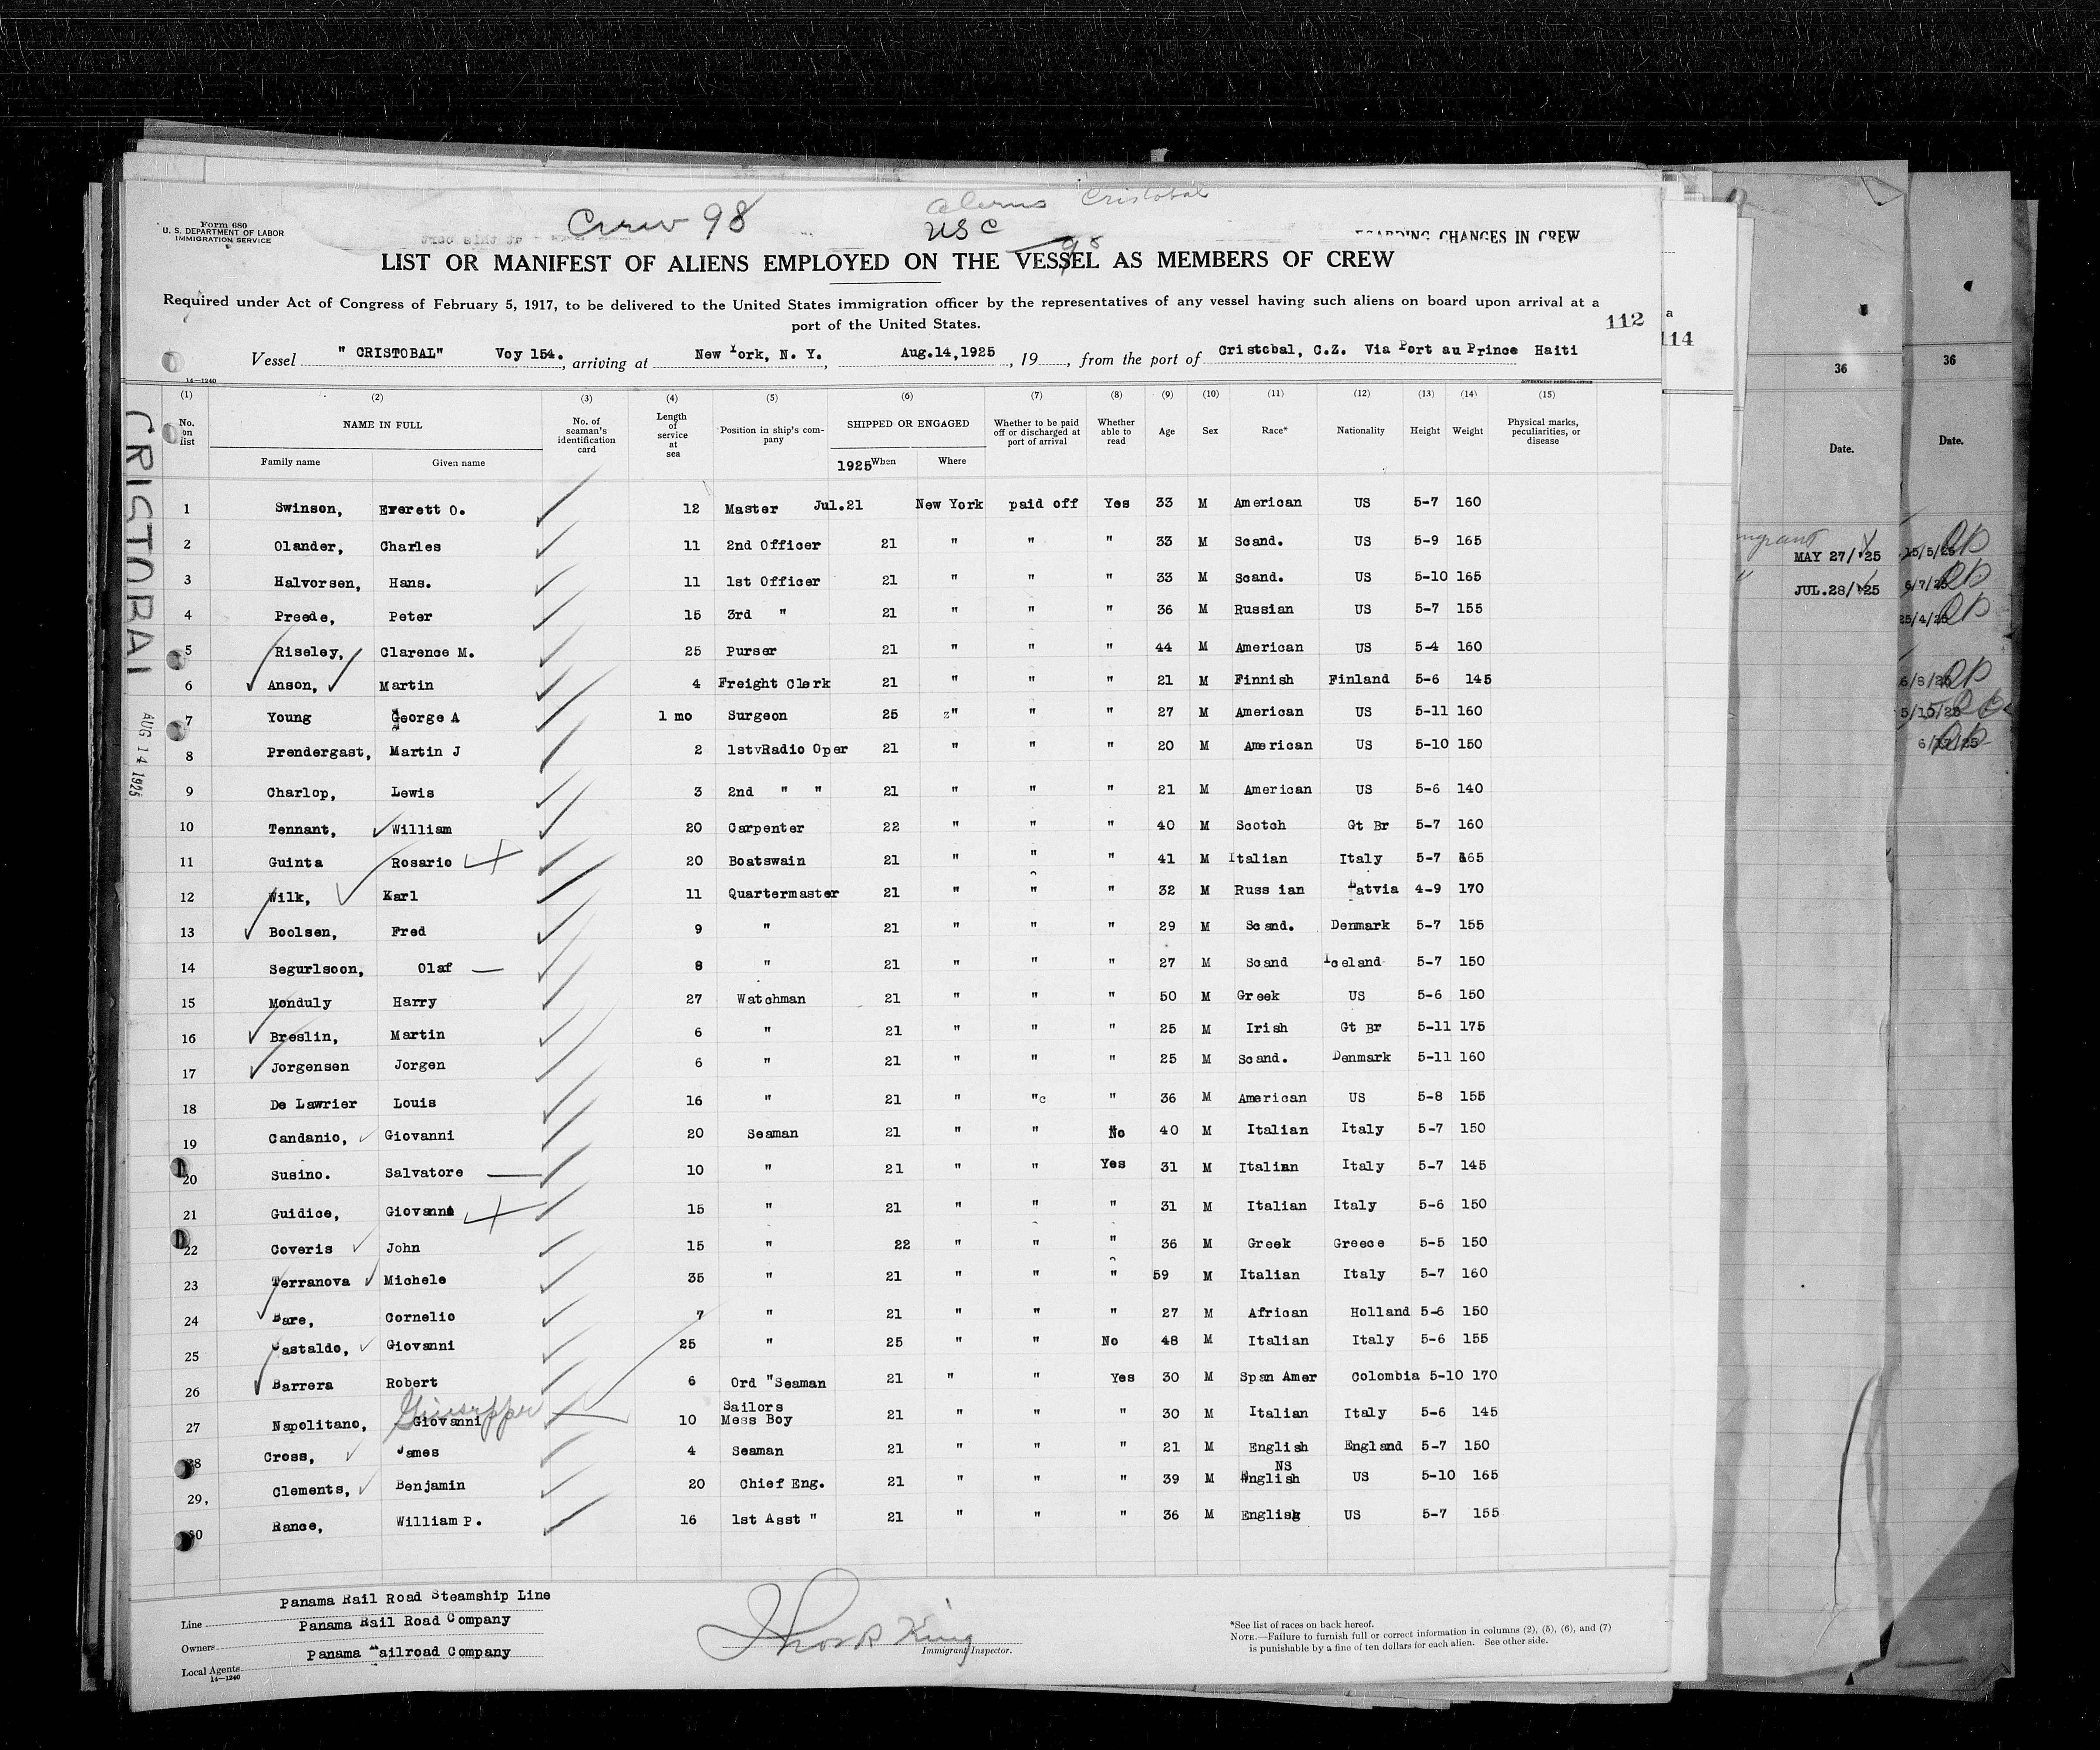 Form 680
U. S. DEPARTMENT OF LABOR
IMMIGRATION SERVICE
Crew 98
aliens Cristobal
USC
98
CHANGES IN CREW
LIST OR MANIFEST OF ALIENS EMPLOYED ON THE VESSEL AS MEMBERS OF CREW
Required under Act of Congress of February 5, 1917, to be delivered to the United States immigration officer by the representatives of any vessel having such aliens on board upon arrival at a
port of the United States.
112
a
114
Vessel " CRISTOBAL" Voy 154. , arriving at New York, N. Y. , Aug.14,1925 , 19 , from the port of Cristobal, C.Z. Via Port au Prince Haiti
14—1240
GOVERNMENT PRINTING OFFICE
(1) (2) (3) (4) (5) (6) (7) (8) (9) (10) (11) (12) (13) (14) (15)
No. on list NAME IN FULL No. of seaman's identification card Length of service at sea Position in ship's company SHIPPED OR ENGAGED Whether to be paid off or discharged at port of arrival Whether able to read Age Sex Race* Nationality Height Weight Physical marks, peculiarities, or disease
Family name Given name 1925 When Where
1 Swinson, Everett O. 12 Master Jul.21 New York paid off Yes 33 M American US 5-7 160
2 Olander, Charles 11 2nd Officer 21 " " " 33 M Scand. US 5-9 165
3 Halvorsen, Hans. 11 1st Officer 21 " " " 33 M Scand. US 5-10 165
4 Preede, Peter 15 3rd " 21 " " " 36 M Russian US 5-7 155
5 Riseley, Clarence M. 25 Purser 21 " " " 44 M American US 5-4 160
6 Anson, Martin 4 Freight Clerk 21 " " " 21 M Finnish Finland 5-6 145
7 Young George A 1 mo Surgeon 25 z" " " 27 M American US 5-11 160
8 Prendergast, Martin J 2 1stvRadio Oper 21 " " " 20 M American US 5-10 150
9 Charlop, Lewis 3 2nd " " 21 " " " 21 M American US 5-6 140
10 Tennant, William 20 Carpenter 22 " " " 40 M Scotch Gt Br 5-7 160
11 Guinta Rosario 20 Boatswain 21 " " " 41 M Italian Italy 5-7 165
12 Wilk, Karl 11 Quartermaster 21 " " " 32 M Russ ian Latvia 4-9 170
13 Boolsen, Fred 9 " 21 " " " 29 M Scand. Denmark 5-7 155
14 Segurlsoon, Olaf — 8 " 21 " " " 27 M Scand Iceland 5-7 150
15 Monduly Harry 27 Watchman 21 " " " 50 M Greek US 5-6 150
16 Breslin, Martin 6 " 21 " " " 25 M Irish Gt Br 5-11 175
17 Jorgensen Jorgen 6 " 21 " " " 25 M Scand. Denmark 5-11 160
18 De Lawrier Louis 16 " 21 " "c " 36 M American US 5-8 155
19 Candanio, Giovanni 20 Seaman 21 " " No 40 M Italian Italy 5-7 150
20 Susino. Salvatore — 10 " 21 " " Yes 31 M Italian Italy 5-7 145
21 Guidice, Giovanni 15 " 21 " " " 31 M Italian Italy 5-6 150
22 Coveris John 15 " 22 " " " 36 M Greek Greece 5-5 150
23 Terranova Michele 35 " 21 " " " 59 M Italian Italy 5-7 160
24 Bare, Cornelio 7 " 21 " " " 27 M African Holland 5-6 150
25 Castaldo, Giovanni 25 " 25 " " No 48 M Italian Italy 5-6 155
26 Barrera Robert 6 Ord "Seaman 21 " " Yes 30 M Span Amer Colombia 5-10 170
Giuseppe
27 Napolitano, Giovanni 10 Sailors Mess Boy 21 " " " 30 M Italian Italy 5-6 145
28 Cross, James 4 Seaman 21 " " " 21 M English England 5-7 150
NS
29, Clements, Benjamin 20 Chief Eng. 21 " " " 39 M English US 5-10 165
30 Rance, William P. 16 1st Asst " 21 " " " 36 M English US 5-7 155
CRISTOBAL
AUG 14 1925
Line Panama Rail Road Steamship Line
Owners Panama Rail Road Company
Local Agents Panama Railroad Company
14—1240
King
Immigrant Inspector.
*See list of races on back hereof.
NOTE.—Failure to furnish full or correct information in columns (2), (5), (6), and (7)
is punishable by a fine of ten dollars for each alien. See other side.
36
Date.
MAY 27/'25
JUL.28/'25
36
Date.
15/5/25
6/7/25
25/4/25
6/8/25